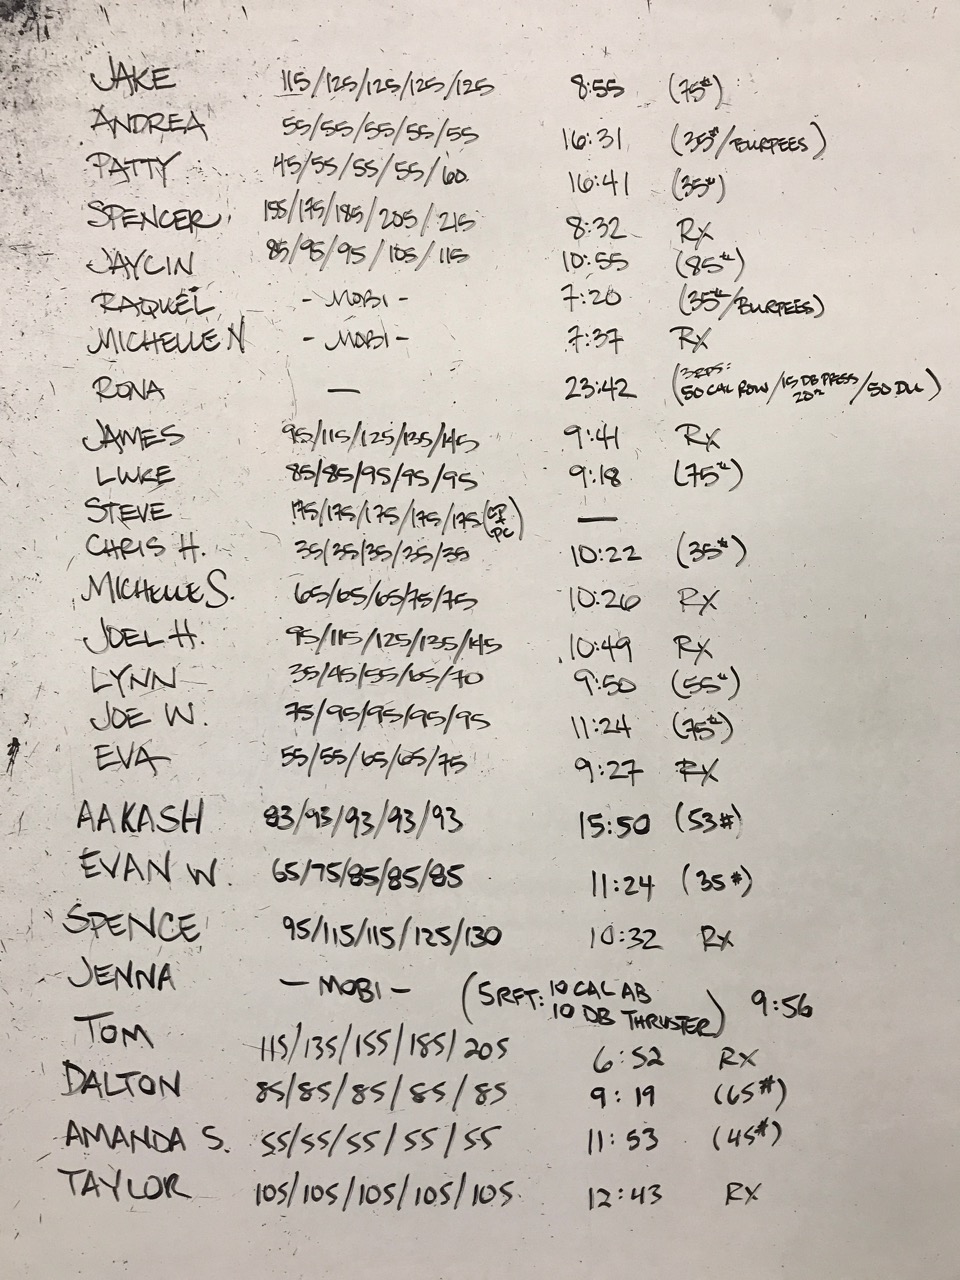 JAKE 115/125/125/125/125 8:55 (75#)
ANDREA 55/55/55/55/55 16:31 (35#/BURPEES)
PATTY 45/55/55/55/60 16:41 (35#)
SPENCER 155/175/185/205/215 8:32 RX
JAYCIN 85/95/95/105/115 10:55 (85#)
RAQUEL - MOBI - 7:20 (35#/BURPEES)
MICHELLE N - MOBI - 7:37 RX
RONA — 23:42 (3RDS: 50 CAL ROW/15 DB PRESS 20#/50 DU)
JAMES 95/115/125/135/145 9:41 RX
LUKE 85/85/95/95/95 9:18 (75#)
STEVE 175/175/175/175/175 (CP + PC) —
CHRIS H. 35/35/35/35/35 10:22 (35#)
MICHELLE S. 65/65/65/75/75 10:26 RX
JOEL H. 95/115/125/135/145 10:49 RX
LYNN 35/45/55/65/70 9:50 (55#)
JOE W. 75/95/95/95/95 11:24 (75#)
EVA 55/55/65/65/75 9:27 RX
AAKASH 83/93/93/93/93 15:50 (53#)
EVAN W. 65/75/85/85/85 11:24 (35#)
SPENCE 95/115/115/125/130 10:32 RX
JENNA - MOBI - (5RFT: 10 CAL AB 10 DB THRUSTER) 9:56
TOM 115/135/155/185/205 6:52 RX
DALTON 85/85/85/85/85 9:19 (65#)
AMANDA S. 55/55/55/55/55 11:53 (45#)
TAYLOR 105/105/105/105/105 12:43 RX